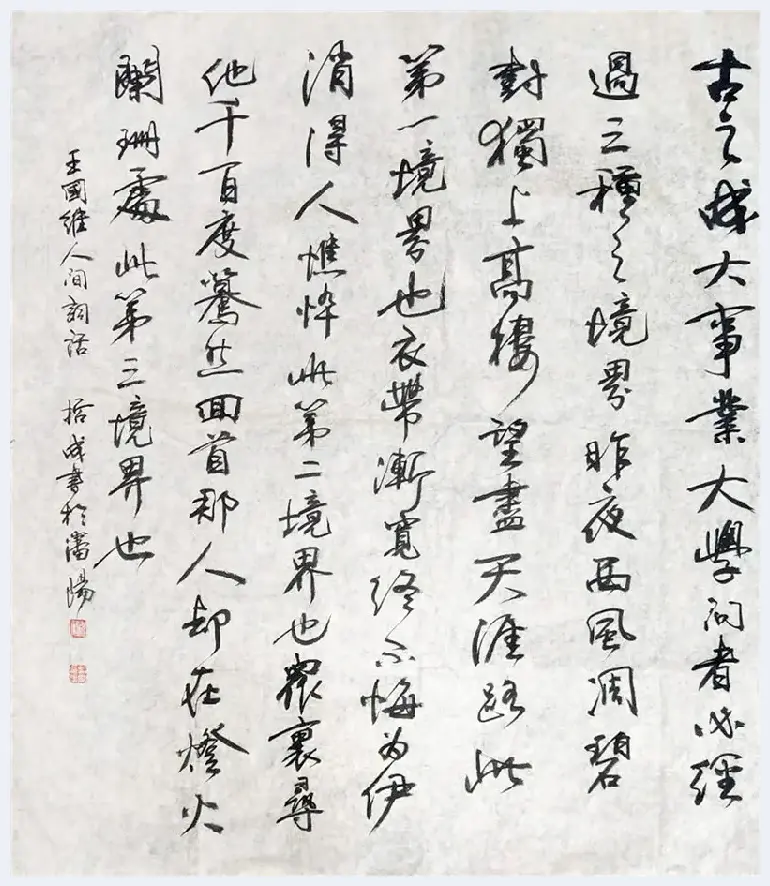 古之成大事業大學問者必經
過三種之境界昨夜西風凋碧
樹獨上高樓望盡天涯路此
第一境界也衣帶漸寬終不悔为伊
消得人憔悴此第二境界也衆裏尋
他千百度驀然回首那人却在燈火
闌珊處此第三境界也
王國維人间詞话 成書於瀋陽